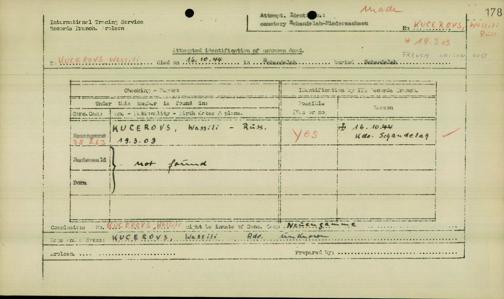 Made
178
International Tracing Service
Records Branch, Arolsen
Attempt. Identific. of
cemetery Schandelah-Niedersachsen
No KUCEROVS, WASSILI
Russ.
* 19.3.03
Attempted identification of unknown dead.
KUCEROVS Wassili died on 16.10.44 in Schandelah buried Schandelah
Checking - Report
Identification by ITS Records Branch.
Under this number is found in:
Possible
Reason
Conc. Camp Name - Nationality - Birth dates & place.
(Yes or no)
KUCEROVS, Wassili - Russ.
YES
16.10.44
Neuengamme
19.3.03
Kdo. Schandelah
Buchenwald
not found
Dora
Conclusion: No. KUCEROVS, WASSILI might be inmate of Conc. Camp Neuengamme
KUCEROVS, Wassili Adr. unknown
Arolsen,
Prepared by: